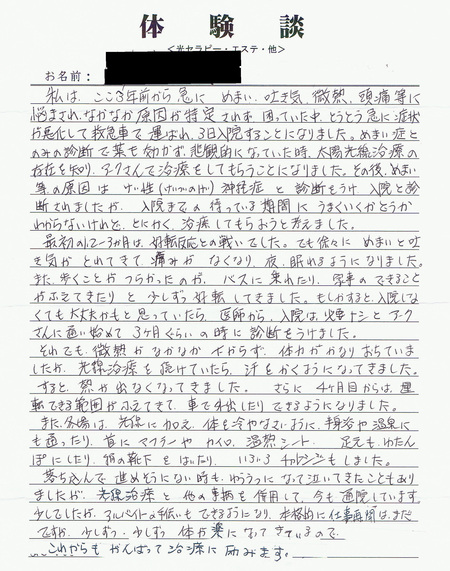 体験談
<光セラピー・エステ・他>
お名前：
私は、ここ3年前から急に めまい、吐き気、微熱、頭痛等に
悩まされ、なかなか原因が特定されず、困っていた中、とうとう急に症状
が悪化して救急車で運ばれ、3日入院することになりました。めまい症と
のみの診断で薬も効かず、悲観的になっていた時、太陽光線治療の
存在を知り、アークさんで治療をしてもらうことになりました。その後、めまい
等の原因は けい性(けいついのけい)神経症 と 診断をうけ 入院と診
断されましたが、入院までの待っている期間に うまくいくかどうか
わからないけれど、とにかく、治療してもらおうと考えました。
最初の1、2~3ヶ月は、好転反応との戦いでした。でも徐々に めまいと吐
き気が とれてきて、痛みが なくなり、夜、眠れるようになりました。
また、歩くことが つらかったのが、バスに 乗れたり、家事の できること
がふえてきたり と 少しずつ 好転 してきました。もしかすると、入院しな
くても大丈夫かもと思っていたら、医師から、入院は、もうナシと アーク
さんに通い始めて 3ヶ月ぐらいの時に診断をうけました。
それでも、微熱が なかなか 下がらず、体力がかなり おちていま
したが、光線治療を 続けていたら、汗をかくようになってきました。
すると、熱が出なくなってきました。 さらに 4ヶ月目からは、運
転できる範囲が ふえてきて、車で外出したり できるようになりました。
また、冬場は、光線に加え、体を冷やさないように、岩盤浴や温泉に
も通ったり、首に マフラーや カイロ、温熱シート、 足元も、ゆたん
ぽにしたり、絹の靴下 をはいたり、 いろいろ チャレンジもしました。
落ち込んで 進めそうにない時も、ゆううつになって泣いてきたこともあり
ましたが、光線治療 と 他の事柄を併用して、今も通院しています。
少しでしたが、アルバイトの手伝いも できるようになり、本格的に仕事再開は、まだ
ですが、少しずつ、少しずつ 体が楽に なってきているので、
これからも がんばって治療に 励みます。